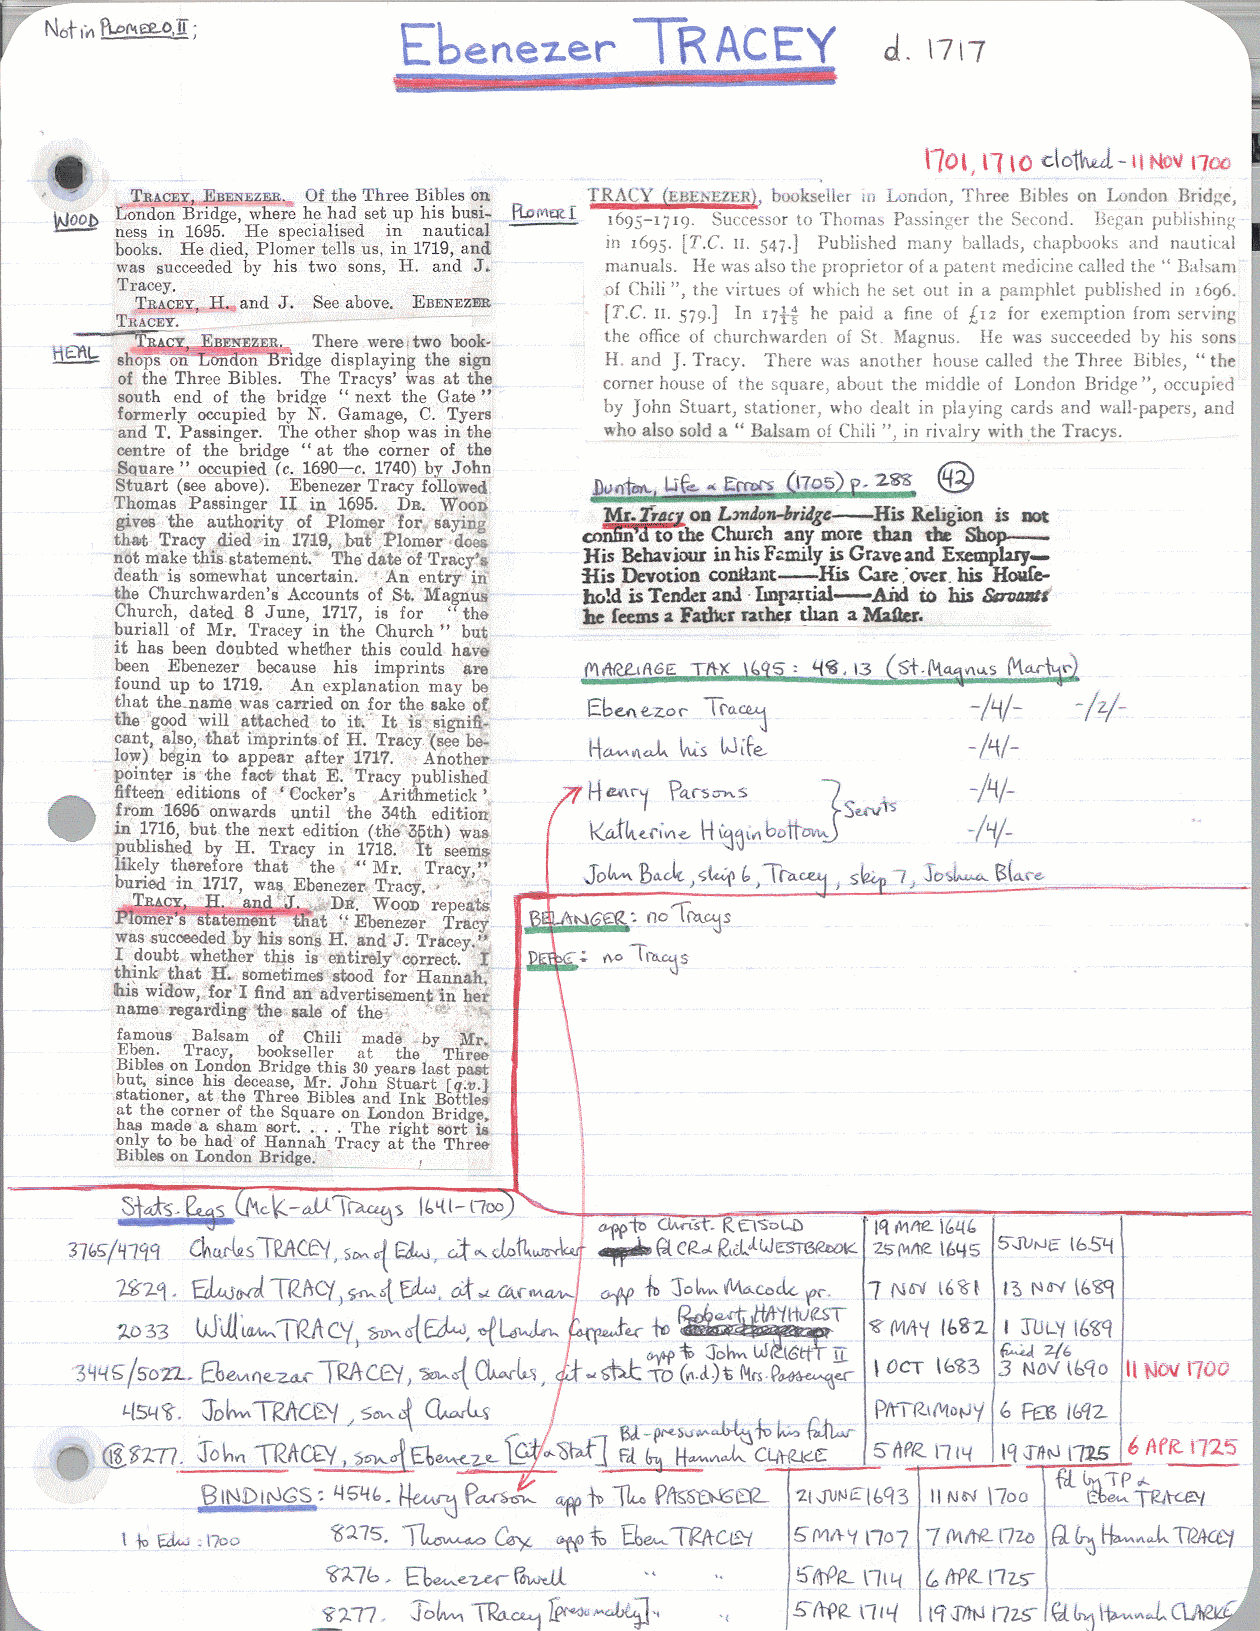 Not in PLOMER O, II;
Ebenezer TRACEY d. 1717
1701, 1710 clothed - 11 NOV 1700
WOOD
TRACEY, EBENEZER. Of the Three Bibles on
London Bridge, where he had set up his busi-
ness in 1695. He specialised in nautical
books. He died, Plomer tells us, in 1719, and
was succeeded by his two sons, H. and J.
Tracey.
TRACEY, H. and J. See above. EBENEZER
TRACEY.
HEAL
TRACY, EBENEZER. There were two book-
shops on London Bridge displaying the sign
of the Three Bibles. The Tracys' was at the
south end of the bridge "next the Gate"
formerly occupied by N. Gamage, C. Tyers
and T. Passinger. The other shop was in the
centre of the bridge "at the corner of the
Square" occupied (c. 1690—c. 1740) by John
Stuart (see above). Ebenezer Tracy followed
Thomas Passinger II in 1695. DR. WOOD
gives the authority of Plomer for saying
that Tracy died in 1719, but Plomer does
not make this statement. The date of Tracy's
death is somewhat uncertain. An entry in
the Churchwarden's Accounts of St. Magnus
Church, dated 8 June, 1717, is for "the
buriall of Mr. Tracey in the Church" but
it has been doubted whether this could have
been Ebenezer because his imprints are
found up to 1719. An explanation may be
that the name was carried on for the sake of
the good will attached to it. It is signifi-
cant, also, that imprints of H. Tracy (see be-
low) begin to appear after 1717. Another
pointer is the fact that E. Tracy published
fifteen editions of 'Cocker's Arithmetick'
from 1696 onwards until the 34th edition
in 1716, but the next edition (the 35th) was
published by H. Tracy in 1718. It seems
likely therefore that the "Mr. Tracy,"
buried in 1717, was Ebenezer Tracy.
TRACY, H. and J. DR. WOOD repeats
Plomer's statement that "Ebenezer Tracy
was succeeded by his sons H. and J. Tracey."
I doubt whether this is entirely correct. I
think that H. sometimes stood for Hannah,
his widow, for I find an advertisement in her
name regarding the sale of the
famous Balsam of Chili made by Mr.
Eben. Tracy, bookseller at the Three
Bibles on London Bridge this 30 years last past
but, since his decease, Mr. John Stuart [q.v.]
stationer, at the Three Bibles and Ink Bottles
at the corner of the Square on London Bridge,
has made a sham sort. . . . The right sort is
only to be had of Hannah Tracy at the Three
Bibles on London Bridge.
PLOMER I
TRACY (EBENEZER), bookseller in London, Three Bibles on London Bridge,
1695-1719. Successor to Thomas Passinger the Second. Began publishing
in 1695. [T.C. II. 547.] Published many ballads, chapbooks and nautical
manuals. He was also the proprietor of a patent medicine called the "Balsam
of Chili", the virtues of which he set out in a pamphlet published in 1696.
[T.C. II. 579.] In 17 14/5 he paid a fine of £12 for exemption from serving
the office of churchwarden of St. Magnus. He was succeeded by his sons
H. and J. Tracy. There was another house called the Three Bibles, "the
corner house of the square, about the middle of London Bridge", occupied
by John Stuart, stationer, who dealt in playing cards and wall-papers, and
who also sold a "Balsam of Chili", in rivalry with the Tracys.
Dunton, Life & Errors (1705) p. 288 42
Mr. Tracy on London-bridge——His Religion is not
confin'd to the Church any more than the Shop——
His Behaviour in his Family is Grave and Exemplary—
His Devotion constant——His Care over his House-
hold is Tender and Impartial——And to his Servants
he seems a Father rather than a Master.
MARRIAGE TAX 1695: 48.13 (St. Magnus Martyr)
Ebenezor Tracey -/4/- -/2/-
Hannah his Wife -/4/-
Henry Parsons -/4/-
Servts
Katherine Higginbottom -/4/-
John Back, skip 6, Tracey, skip 7, Joshua Blare
BELANGER: no Tracys
DEFOE: no Tracys
Stats. Regs (McK - all Traceys 1641-1700)
app to Christ. REISOLD 19 MAR 1646
3765/4799 Charles TRACEY, son of Edw, cit & clothworker fd CR & Richd WESTBROOK 25 MAR 1645 5 JUNE 1654
2829. Edward TRACY, son of Edw, cit & carman app to John Macock pr. 7 NOV 1681 13 NOV 1689
2033 William TRACY, son of Edw, of London Carpenter to Robert HAYHURST 8 MAY 1682 1 JULY 1689
app to John WRIGHT II fined 2/6
3445/5022. Ebennezar TRACEY, son of Charles, cit & stat TO (n.d.) to Mrs. Passenger 1 OCT 1683 3 NOV 1690 11 NOV 1700
4548. John TRACEY, son of Charles PATRIMONY 6 FEB 1692
Bd - presumably to his father
18 8277. John TRACEY, son of Ebeneze [Cit & Stat] Fd by Hannah CLARKE 5 APR 1714 19 JAN 1725 6 APR 1725
BINDINGS: 4546. Henry Parson app to Tho PASSENGER 21 JUNE 1693 11 NOV 1700 fd by TP & Eben TRACEY
1 to Edw: 1700 8275. Thomas Cox app to Eben TRACEY 5 MAY 1707 7 MAR 1720 fd by Hannah TRACEY
8276. Ebenezer Powell " " 5 APR 1714 6 APR 1725
8277. John TRacey [presumably] " " 5 APR 1714 19 JAN 1725 fd by Hannah CLARKE